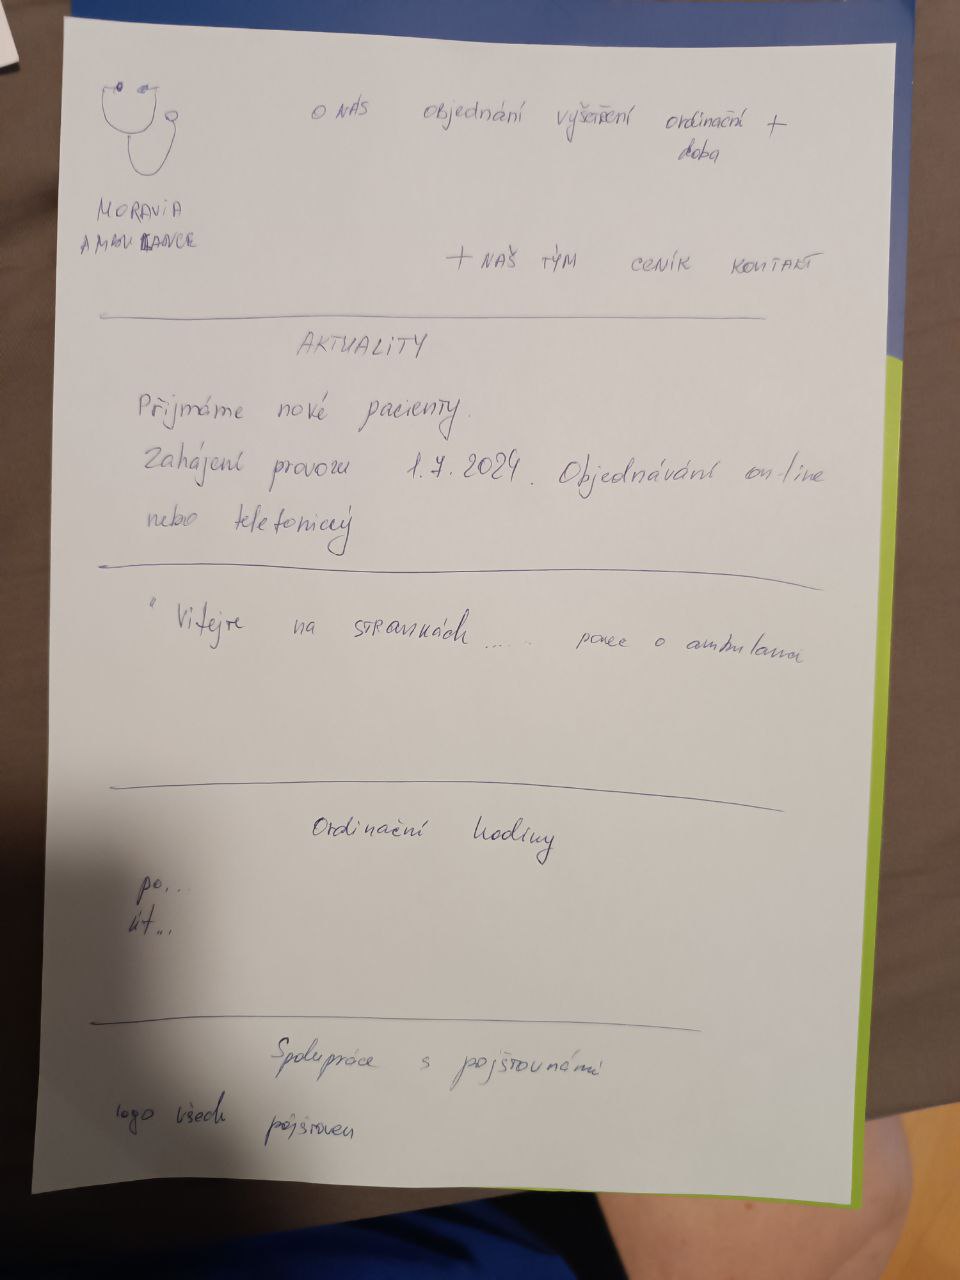 O NÁS objednání vyšetření ordinační +
doba
MORAVIA
AMBULANCE
+ NAŠ TÝM CENÍK KONTAKT
AKTUALITY
Přijmáme nové pacienty.
Zahájení provozu 1.7.2024. Objednávání on-line
nebo telefonický
" Vítejte na STRANKÁCH ...... o ambulanci
Ordinační hodiny
po...
út...
Spolupráce s pojišťovnámi
logo všech pojišťoven